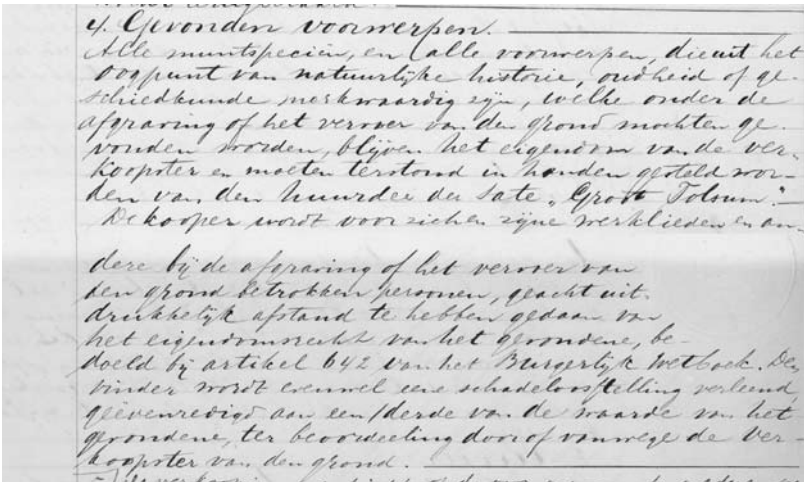 4. Gevonden voorwerpen.
Alle muntspeciën, en alle voorwerpen, die uit het
oogpunt van natuurlijke historie, oudheid of ge-
schiedkunde merkwaardig zijn, welke onder de
afgraving of het vervoer van den grond mochten ge-
vonden worden, blijven het eigendom van de ver-
koopster en moeten terstond in handen gesteld wor-
den van den huurder der sate „Groot Tolsum".
De kooper wordt voor zich en zijne werklieden en an-
dere bij de afgraving of het vervoer van
den grond betrokken personen, geacht uit-
drukkelijk afstand te hebben gedaan van
het eigendomsrecht van het gevondene, be-
doeld bij artikel 642 van het Burgerlijk Wetboek. Den
vinder wordt evenwel eene schadeloosstelling verleend,
geëvenredigd aan een/derde van de waarde van het
gevondene, ter beoordeeling door of vanwege de ver-
koopster van den grond.